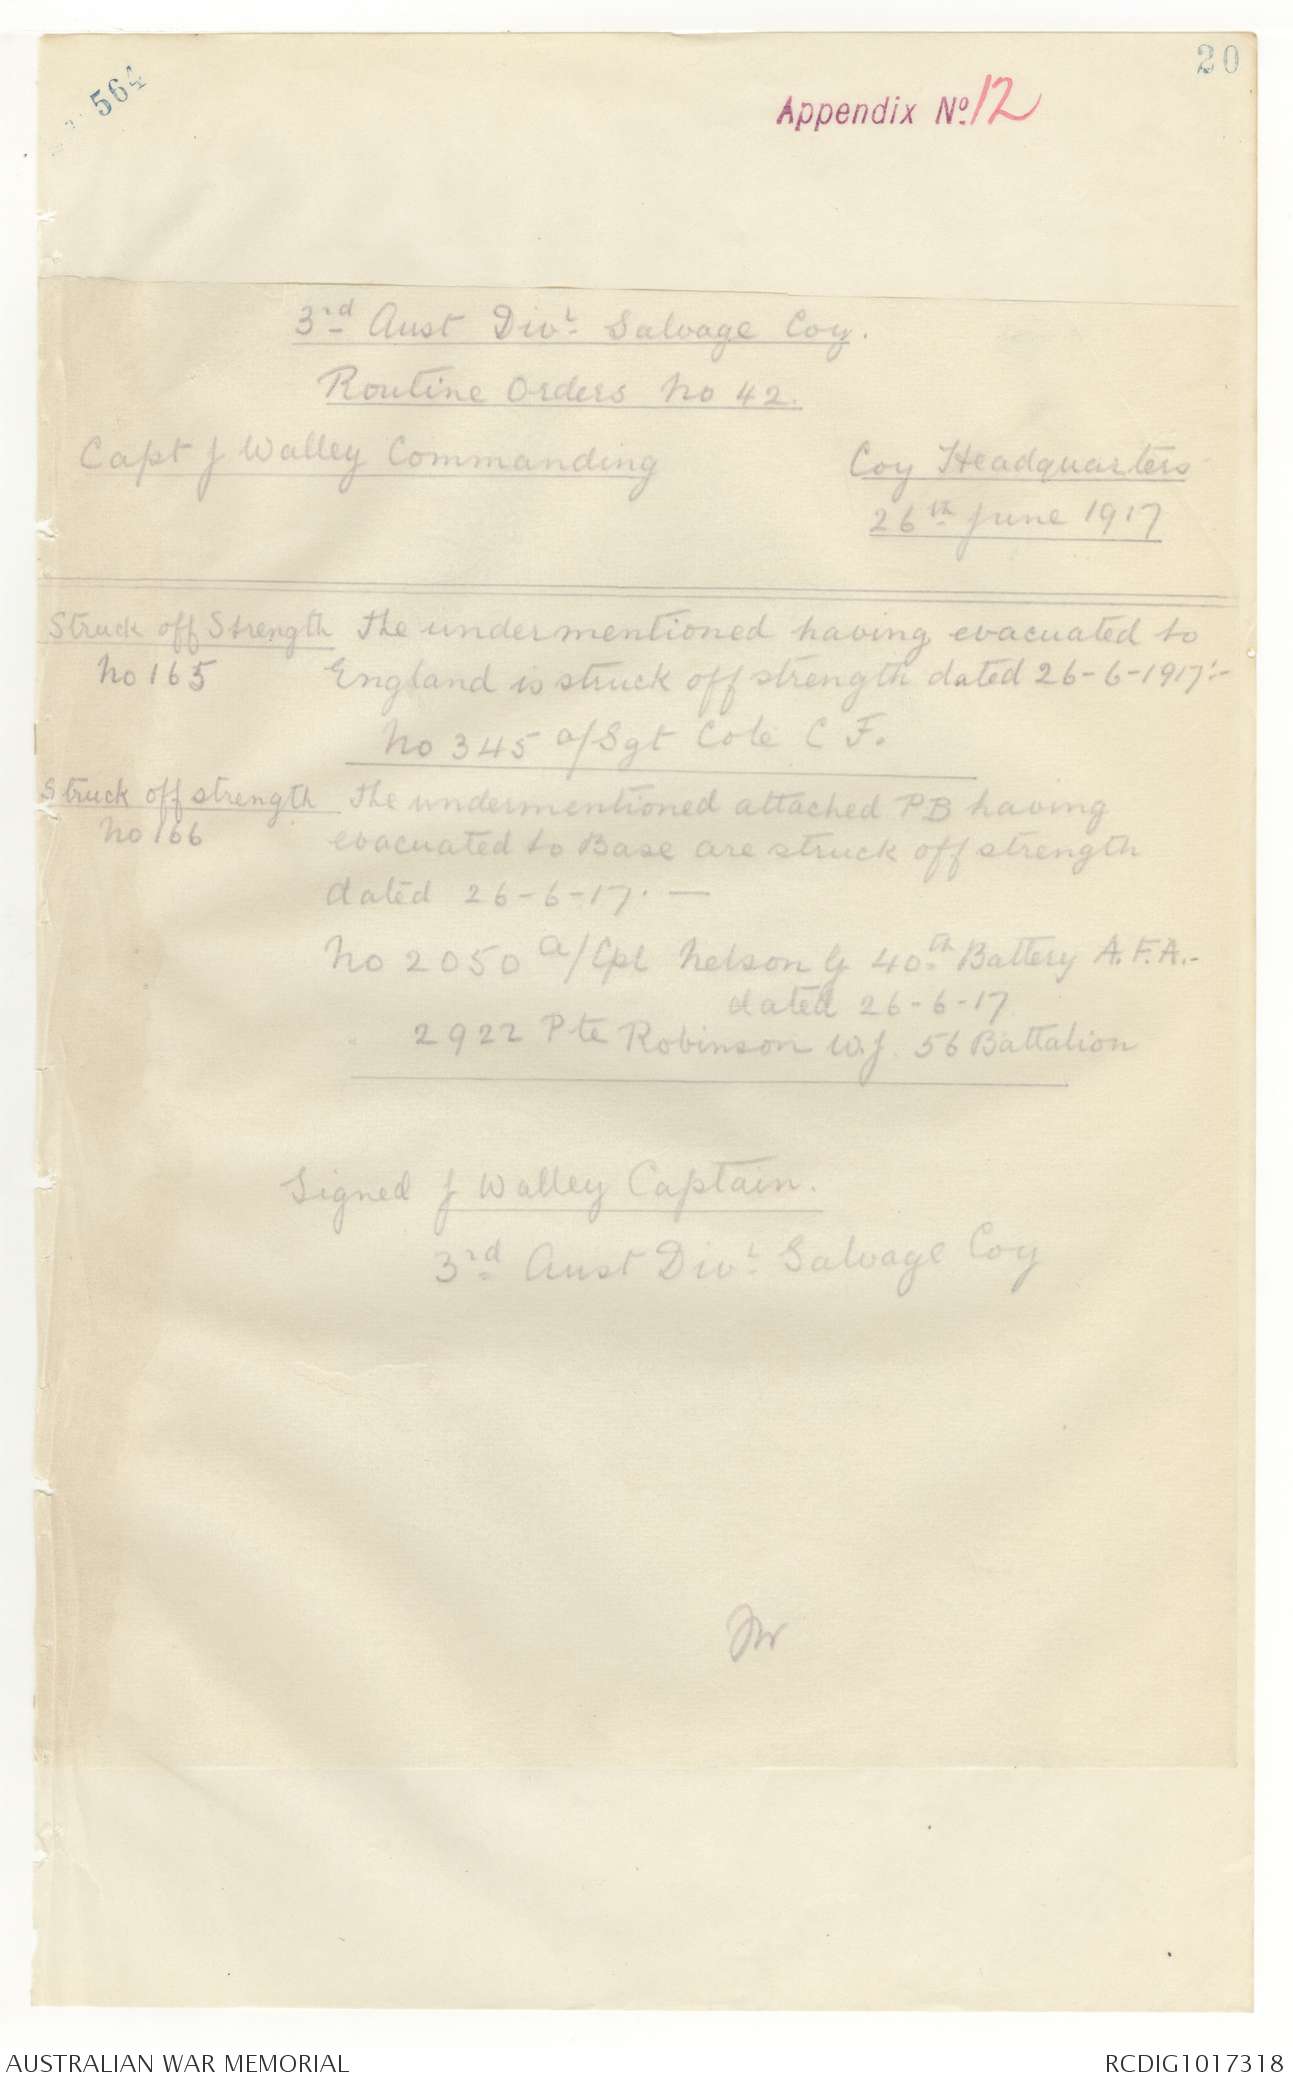 564
20
Appendix No. 12
3rd Aust Divl. Salvage Coy.
Routine Orders No 42.
Capt J Walley Commanding
Coy Headquarters
26th June 1917
Struck off Strength The undermentioned having evacuated to
No 165 England is struck off strength dated 26-6-1917:-
No 345 a/Sgt Cole C F.
Struck off strength The undermentioned attached PB having
No 166 evacuated to Base are struck off strength
dated 26-6-17. —
No 2050 a/Cpl Nelson G 40th Battery A.F.A.-
dated 26-6-17
" 2922 Pte Robinson W.J. 56 Battalion
Signed J Walley Captain.
3rd Aust Divl. Salvage Coy
JW
AUSTRALIAN WAR MEMORIAL
RCDIG1017318